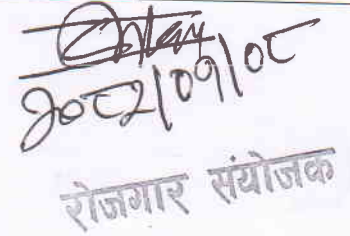 २०८२/०१/०८
रोजगार संयोजक